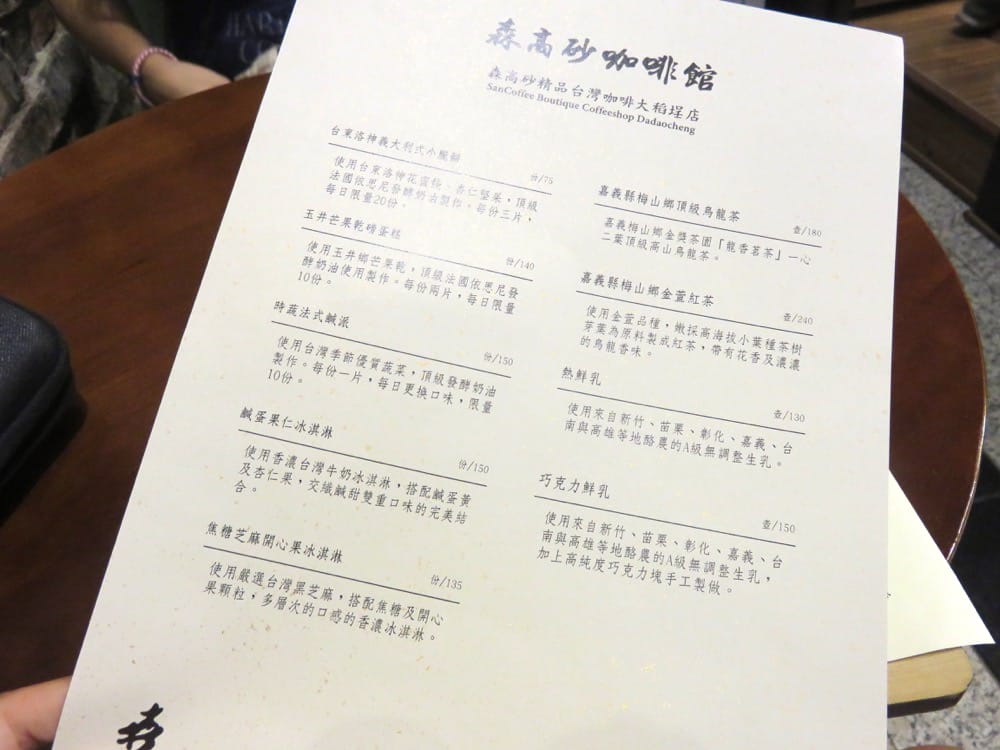 森高砂咖啡館
森高砂精品台灣咖啡大稻埕店
SanCoffee Boutique Coffeeshop Dadaocheng
台東洛神義大利式小脆餅
份/75
使用台東洛神花蜜餞、杏仁堅果，頂級
法國依思尼發酵奶油製作。每份三片，
每日限量20份。
玉井芒果乾磅蛋糕
份/140
使用玉井鄉芒果乾，頂級法國依思尼發
酵奶油使用製作。每份兩片，每日限量
10份。
時蔬法式鹹派
份/150
使用台灣季節優質蔬菜，頂級發酵奶油
製作。每份一片，每日更換口味，限量
10份。
鹹蛋果仁冰淇淋
份/150
使用香濃台灣牛奶冰淇淋，搭配鹹蛋黃
及杏仁果，交織鹹甜雙重口味的完美結
合。
焦糖芝麻開心果冰淇淋
份/135
使用嚴選台灣黑芝麻，搭配焦糖及開心
果顆粒，多層次的口感的香濃冰淇淋。
嘉義縣梅山鄉頂級烏龍茶
壺/180
嘉義梅山鄉金獎茶園「龍香茗茶」一心
二葉頂級高山烏龍茶。
嘉義縣梅山鄉金萱紅茶
壺/240
使用金萱品種，嫩採高海拔小葉種茶樹
芽葉為原料製成紅茶，帶有花香及濃濃
的烏龍香味。
熱鮮乳
壺/130
使用來自新竹、苗栗、彰化、嘉義、台
南與高雄等地酪農的A級無調整生乳。
巧克力鮮乳
壺/150
使用來自新竹、苗栗、彰化、嘉義、台
南與高雄等地酪農的A級無調整生乳，
加上高純度巧克力塊手工製做。